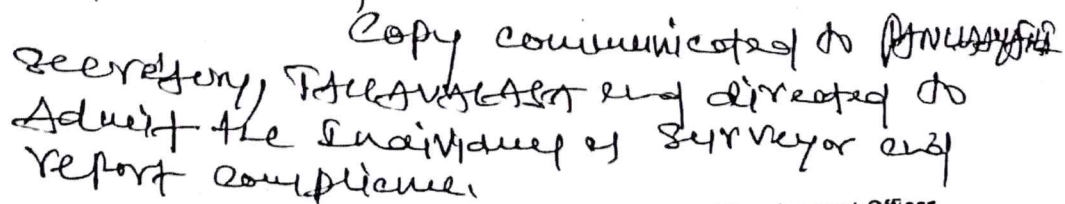 Copy communicated to
Secretary, TALLAVALASA and directed to
Admit the Individual as Surveyor and
report compliance.
Officer